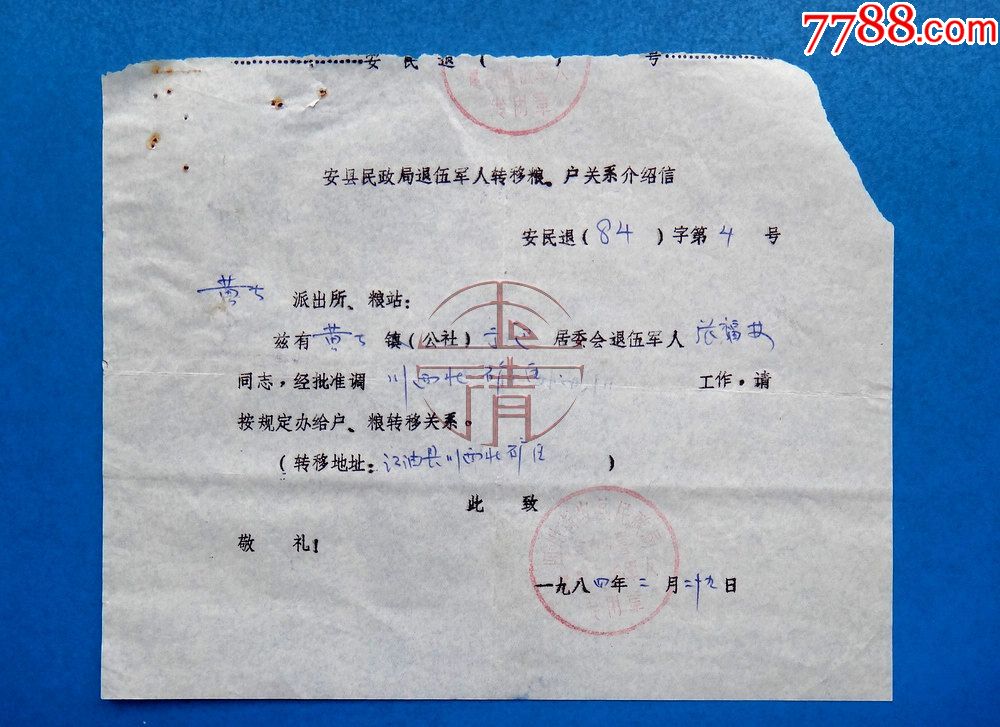 7788.com
安民退( )号
安县民政局退伍军人转移粮。户关系介绍信
安民退(84)字第4号
黄土 派出所、粮站:
兹有黄土镇(公社) 居委会退伍军人
同志,经批准调川西北矿区 工作。请
按规定办给户、粮转移关系。
(转移地址:江油县川西北矿区)
此致
敬礼!
一九八四年二月二十九日
专用章